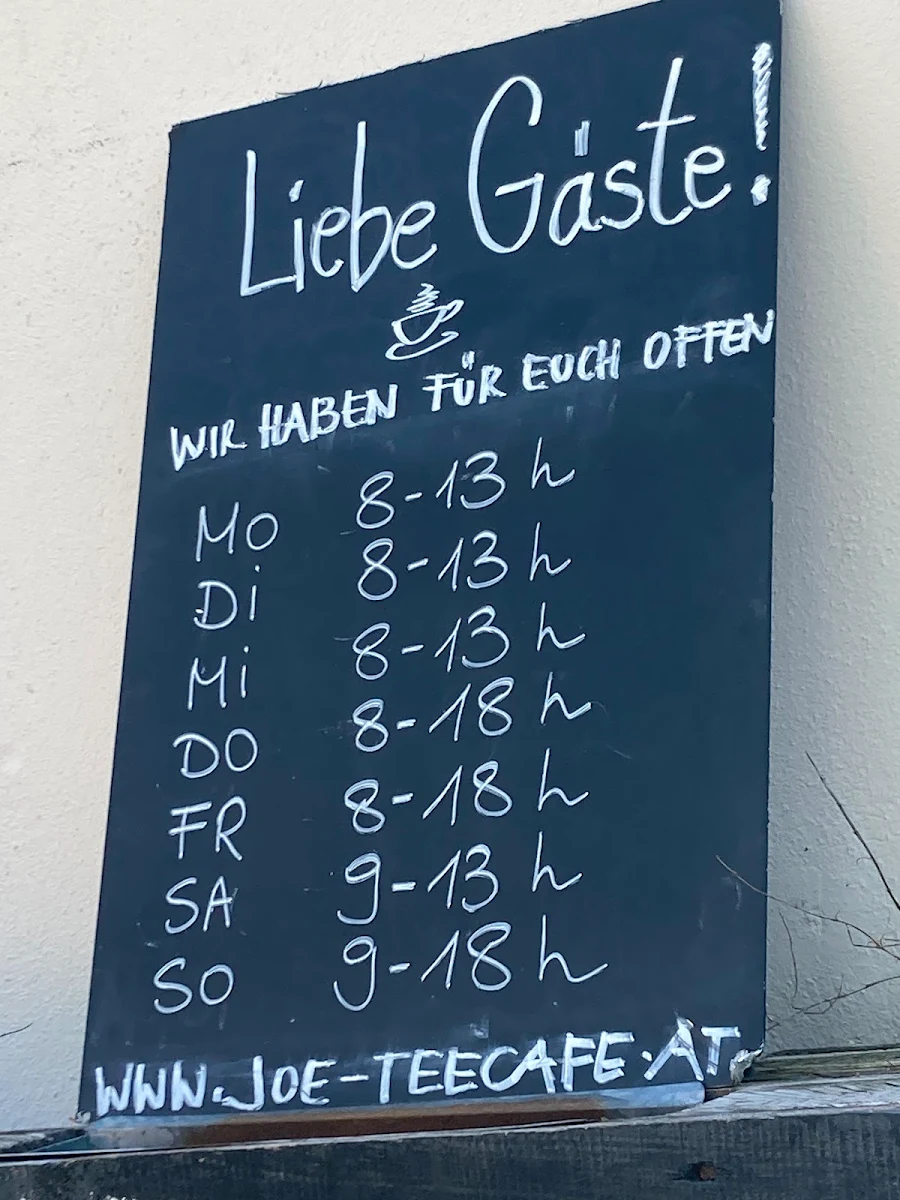 Liebe Gäste!
WIR HABEN FÜR EUCH OFFEN
MO 8-13 h
Di 8-13 h
Mi 8-13 h
DO 8-18 h
FR 8-18 h
SA 9-13 h
SO 9-18 h
WWW.JOE-TEECAFE.AT